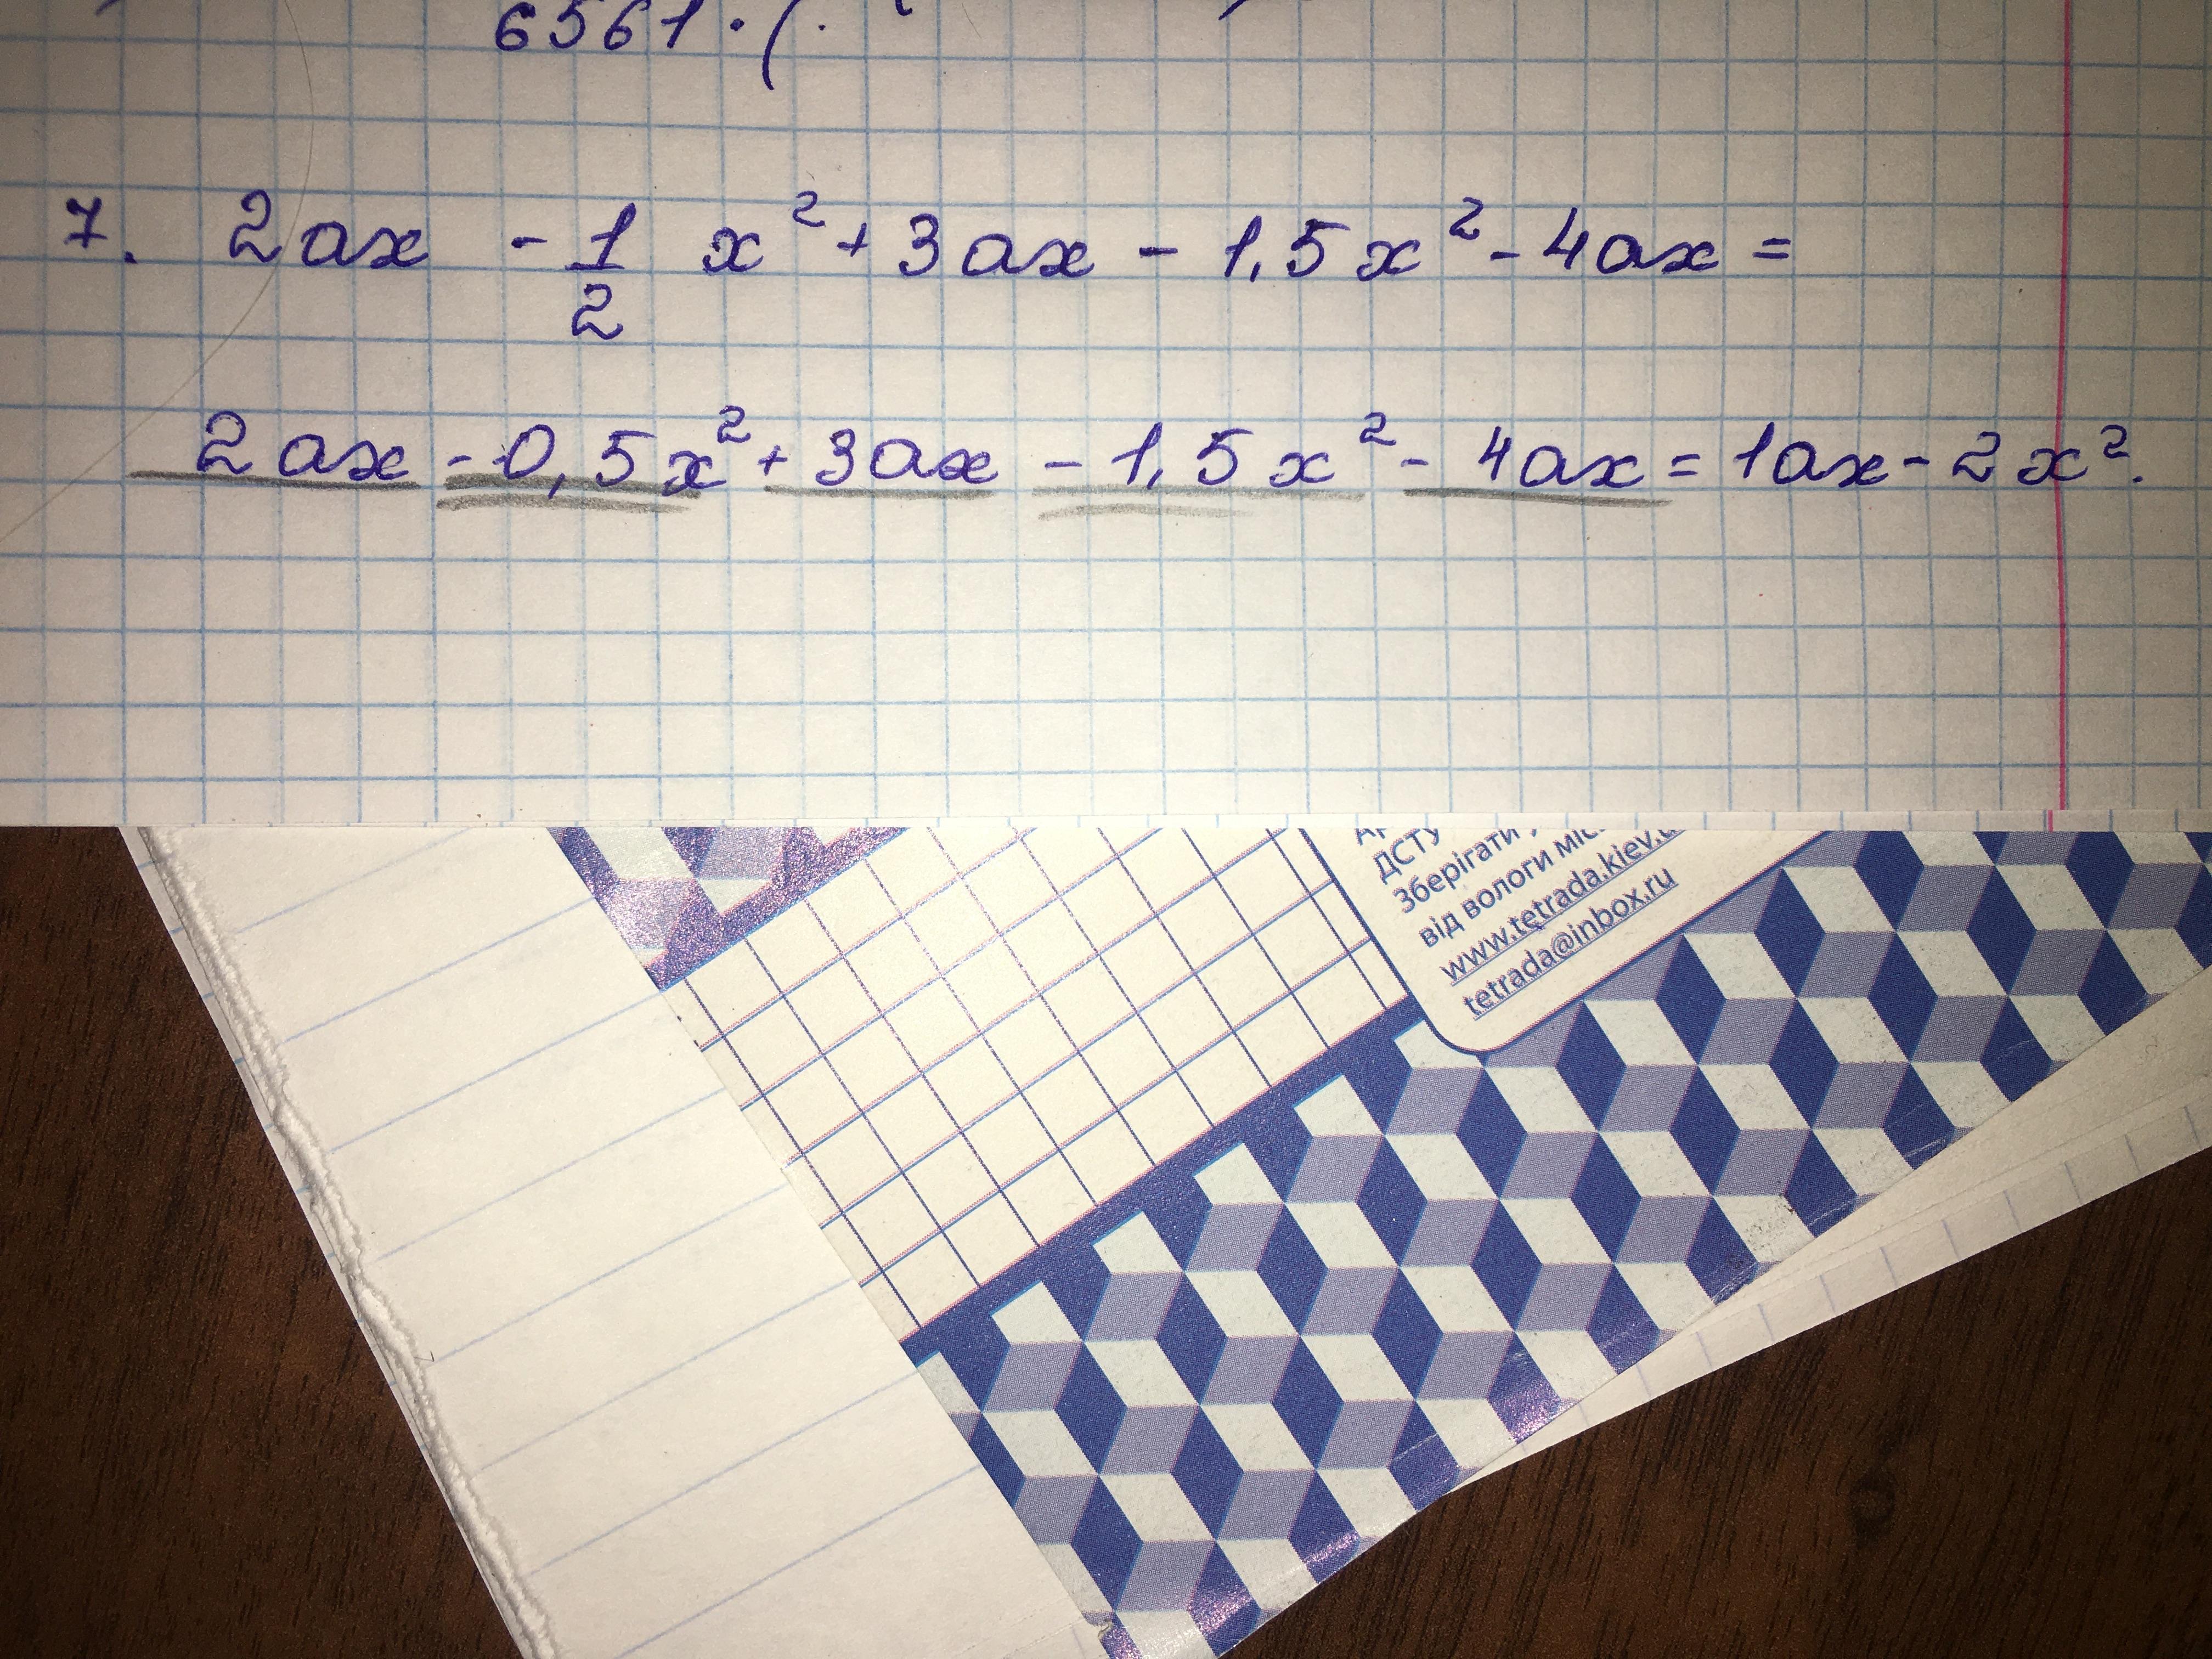 6561 · (
7. 2ax - 1/2 x² + 3ax - 1,5x² - 4ax =
2ax - 0,5x² + 3ax - 1,5x² - 4ax = 1ax - 2x².
ДСТУ
Зберігати
від вологи
www.tetrada.kiev.
tetrada@inbox.ru